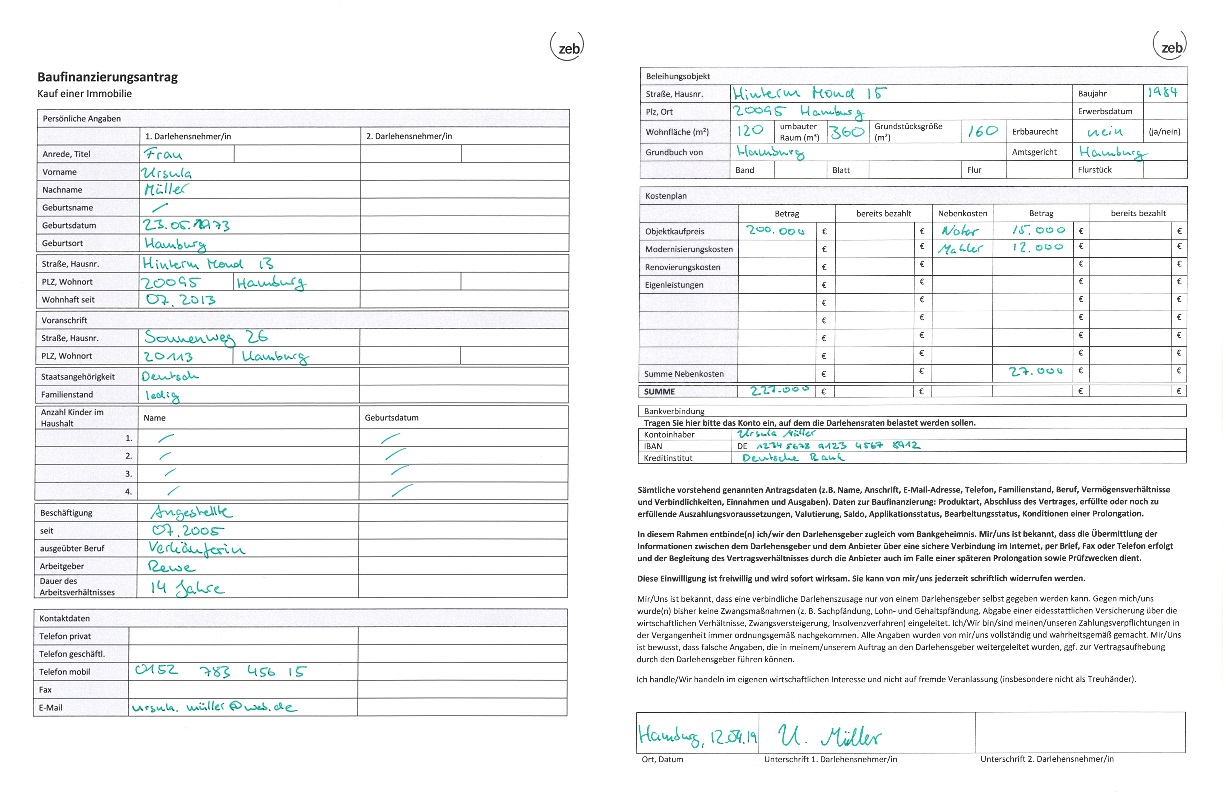 zeb
Baufinanzierungsantrag
Kauf einer Immobilie
Persönliche Angaben
1. Darlehensnehmer/in 2. Darlehensnehmer/in
Anrede, Titel Frau
Vorname Ursula
Nachname Müller
Geburtsname
Geburtsdatum 23.05.1973
Geburtsort Hamburg
Straße, Hausnr. Hinterm Mond 13
PLZ, Wohnort 20095 Hamburg
Wohnhaft seit 07.2013
Voranschrift
Straße, Hausnr. Sonnenweg 26
PLZ, Wohnort 20113 Hamburg
Staatsangehörigkeit Deutsch
Familienstand ledig
Anzahl Kinder im
Haushalt Name Geburtsdatum
1.
2.
3.
4.
Beschäftigung Angestellte
seit 07.2005
ausgeübter Beruf Verkäuferin
Arbeitgeber Rewe
Dauer des
Arbeitsverhältnisses 14 Jahre
Kontaktdaten
Telefon privat
Telefon geschäftl.
Telefon mobil 0152 783 456 15
Fax
E-Mail ursula.müller@web.de
zeb
Beleihungsobjekt
Straße, Hausnr. Hinterm Mond 15 Baujahr 1984
Plz, Ort 20095 Hamburg Erwerbsdatum
Wohnfläche (m²) 120 umbauter Raum (m³) 360 Grundstücksgröße (m²) 160 Erbbaurecht nein (ja/nein)
Grundbuch von Hamburg Amtsgericht Hamburg
Band Blatt Flur Flurstück
Kostenplan
Betrag bereits bezahlt Nebenkosten Betrag bereits bezahlt
Objektkaufpreis 200.000 € € Notar 15.000 € €
Modernisierungskosten € € Mahler 12.000 € €
Renovierungskosten € € € €
Eigenleistungen € € € €
€ € € €
€ € € €
€ € € €
€ € € €
Summe Nebenkosten € € 27.000 € €
SUMME 227.000 € € € €
Bankverbindung
Tragen Sie hier bitte das Konto ein, auf dem die Darlehensraten belastet werden sollen.
Kontoinhaber Ursula Müller
IBAN DE 1234 5678 9123 4567 8912
Kreditinstitut Deutsche Bank
Sämtliche vorstehend genannten Antragsdaten (z.B. Name, Anschrift, E-Mail-Adresse, Telefon, Familienstand, Beruf, Vermögensverhältnisse
und Verbindlichkeiten, Einnahmen und Ausgaben). Daten zur Baufinanzierung: Produktart, Abschluss des Vertrages, erfüllte oder noch zu
erfüllende Auszahlungsvoraussetzungen, Valutierung, Saldo, Applikationsstatus, Bearbeitungsstatus, Konditionen einer Prolongation.
In diesem Rahmen entbinde(n) ich/wir den Darlehensgeber zugleich vom Bankgeheimnis. Mir/uns ist bekannt, dass die Übermittlung der
Informationen zwischen dem Darlehensgeber und dem Anbieter über eine sichere Verbindung im Internet, per Brief, Fax oder Telefon erfolgt
und der Begleitung des Vertragsverhältnisses durch die Anbieter auch im Falle einer späteren Prolongation sowie Prüfzwecken dient.
Diese Einwilligung ist freiwillig und wird sofort wirksam. Sie kann von mir/uns jederzeit schriftlich widerrufen werden.
Mir/Uns ist bekannt, dass eine verbindliche Darlehenszusage nur von einem Darlehensgeber selbst gegeben werden kann. Gegen mich/uns
wurde(n) bisher keine Zwangsmaßnahmen (z. B. Sachpfändung, Lohn- und Gehaltspfändung, Abgabe einer eidesstattlichen Versicherung über die
wirtschaftlichen Verhältnisse, Zwangsversteigerung, Insolvenzverfahren) eingeleitet. Ich/Wir bin/sind meinen/unseren Zahlungsverpflichtungen in
der Vergangenheit immer ordnungsgemäß nachgekommen. Alle Angaben wurden von mir/uns vollständig und wahrheitsgemäß gemacht. Mir/Uns
ist bewusst, dass falsche Angaben, die in meinem/unserem Auftrag an den Darlehensgeber weitergeleitet wurden, ggf. zur Vertragsaufhebung
durch den Darlehensgeber führen können.
Ich handle/Wir handeln im eigenen wirtschaftlichen Interesse und nicht auf fremde Veranlassung (insbesondere nicht als Treuhänder).
Hamburg, 12.04.19 U. Müller
Ort, Datum Unterschrift 1. Darlehensnehmer/in Unterschrift 2. Darlehensnehmer/in